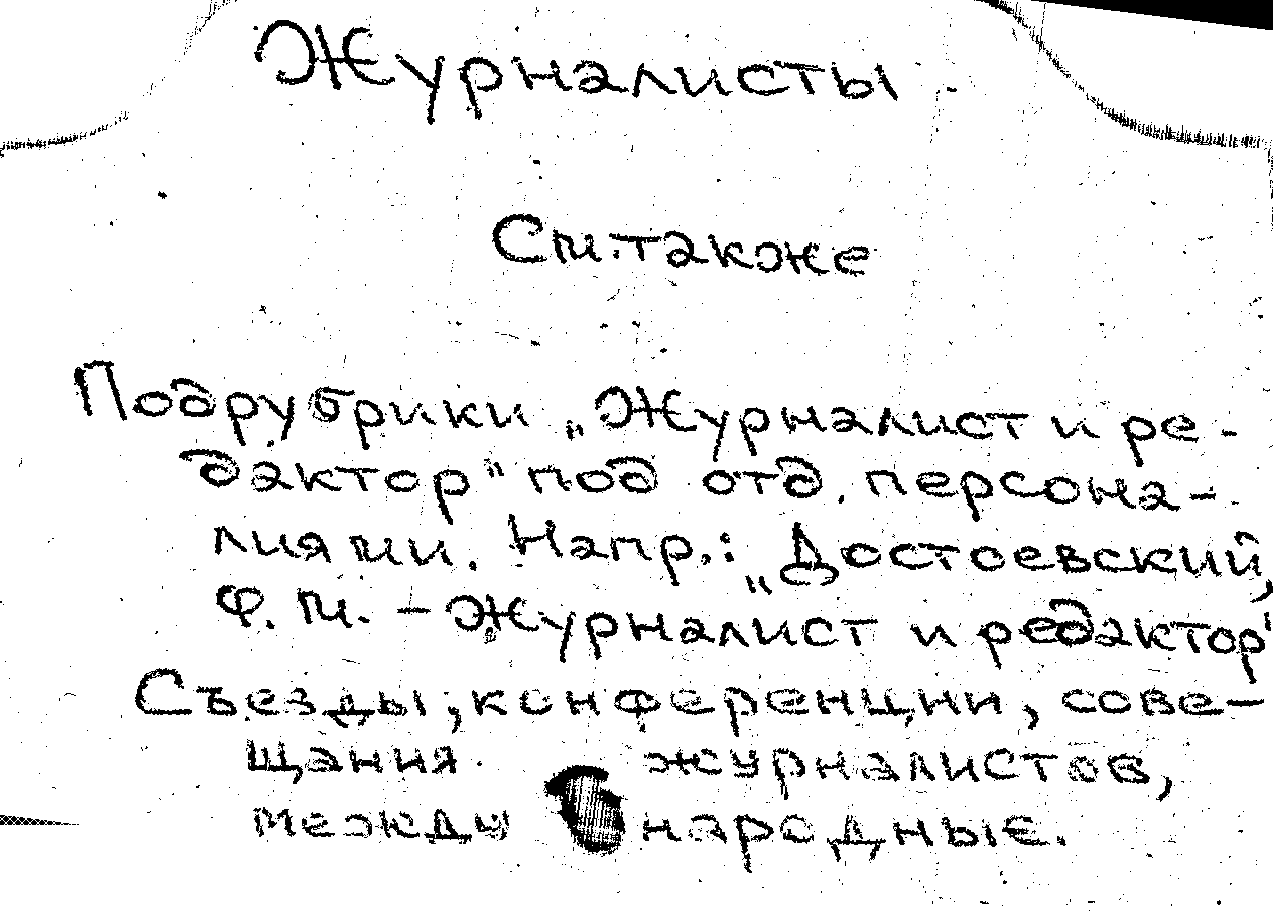 Журналисты
См. также
Подрубрики „Журналист и ре-
дактор" под отд. персона-
лиями. Напр.: „Достоевский,
Ф. М. – Журналист и редактор"
Съезды, конференции, сове-
щания журналистов,
международные.